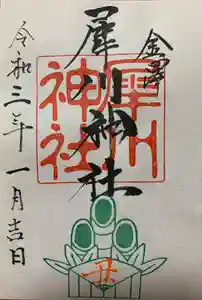 金澤
犀川神社
犀川神社
令和三年一月吉日
丑